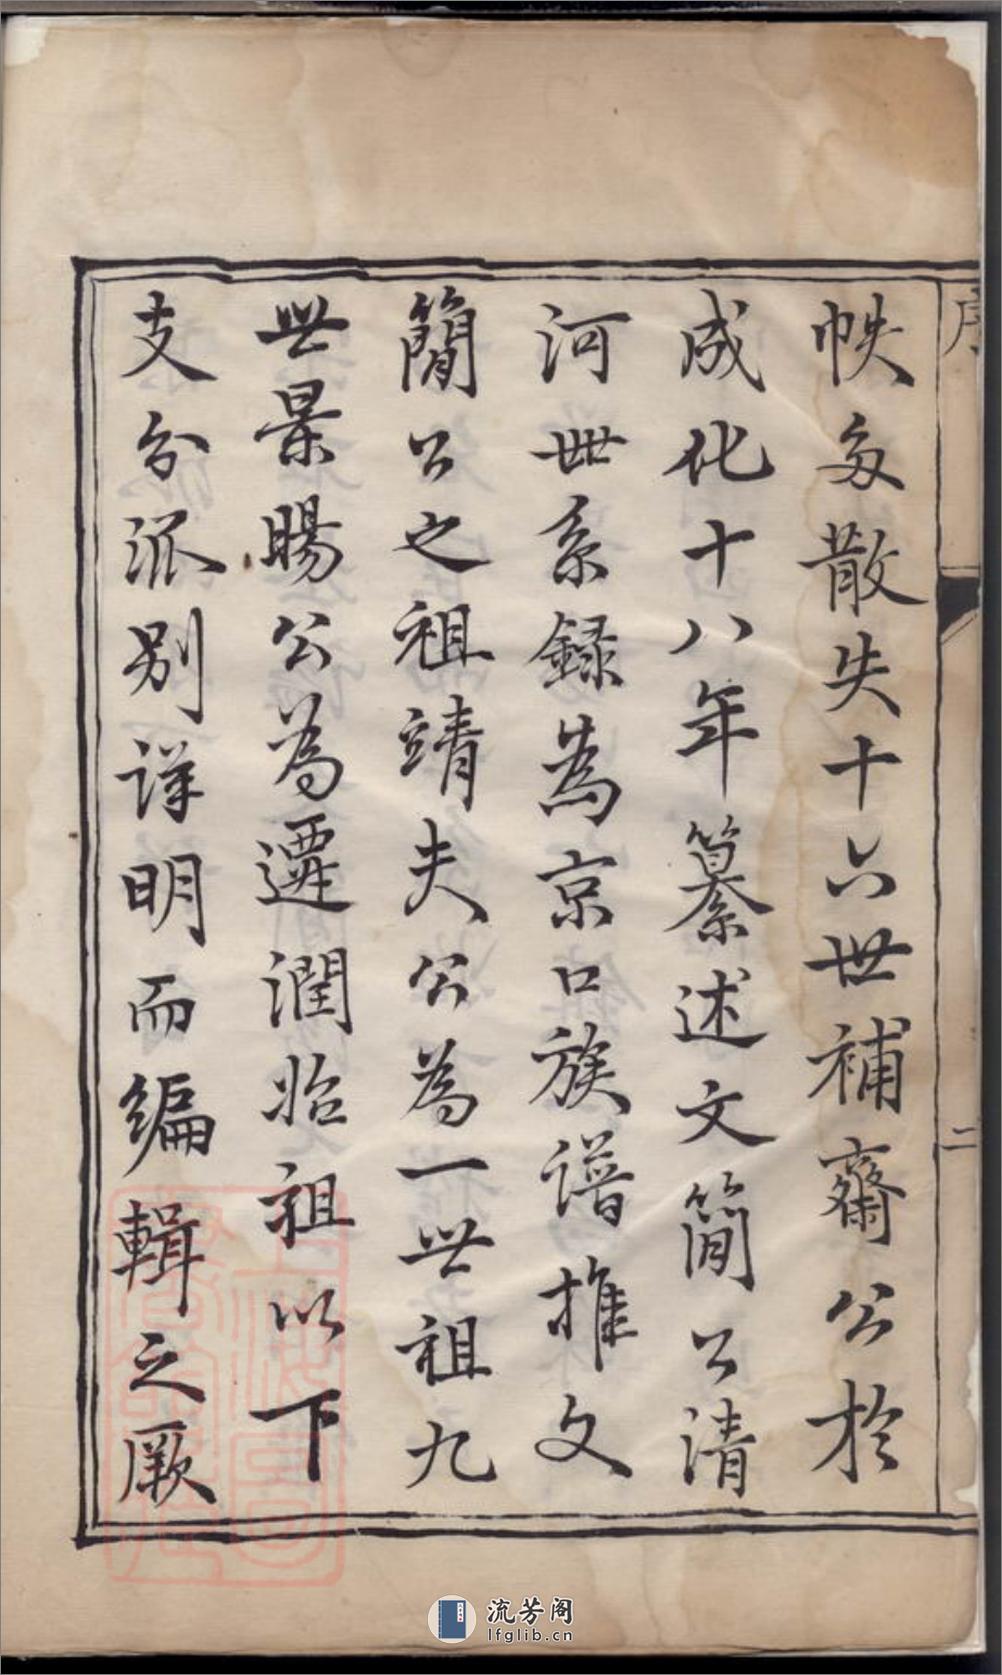 序
二
帙多散失十六世補齋公於
成化十八年纂述文簡公清
河世系録為京口族譜推文
簡公之祖靖夫公為一世祖九
世景暘公為遷潤始祖以下
支分派别詳明而編輯之厥
流芳阁
lfglib.cn